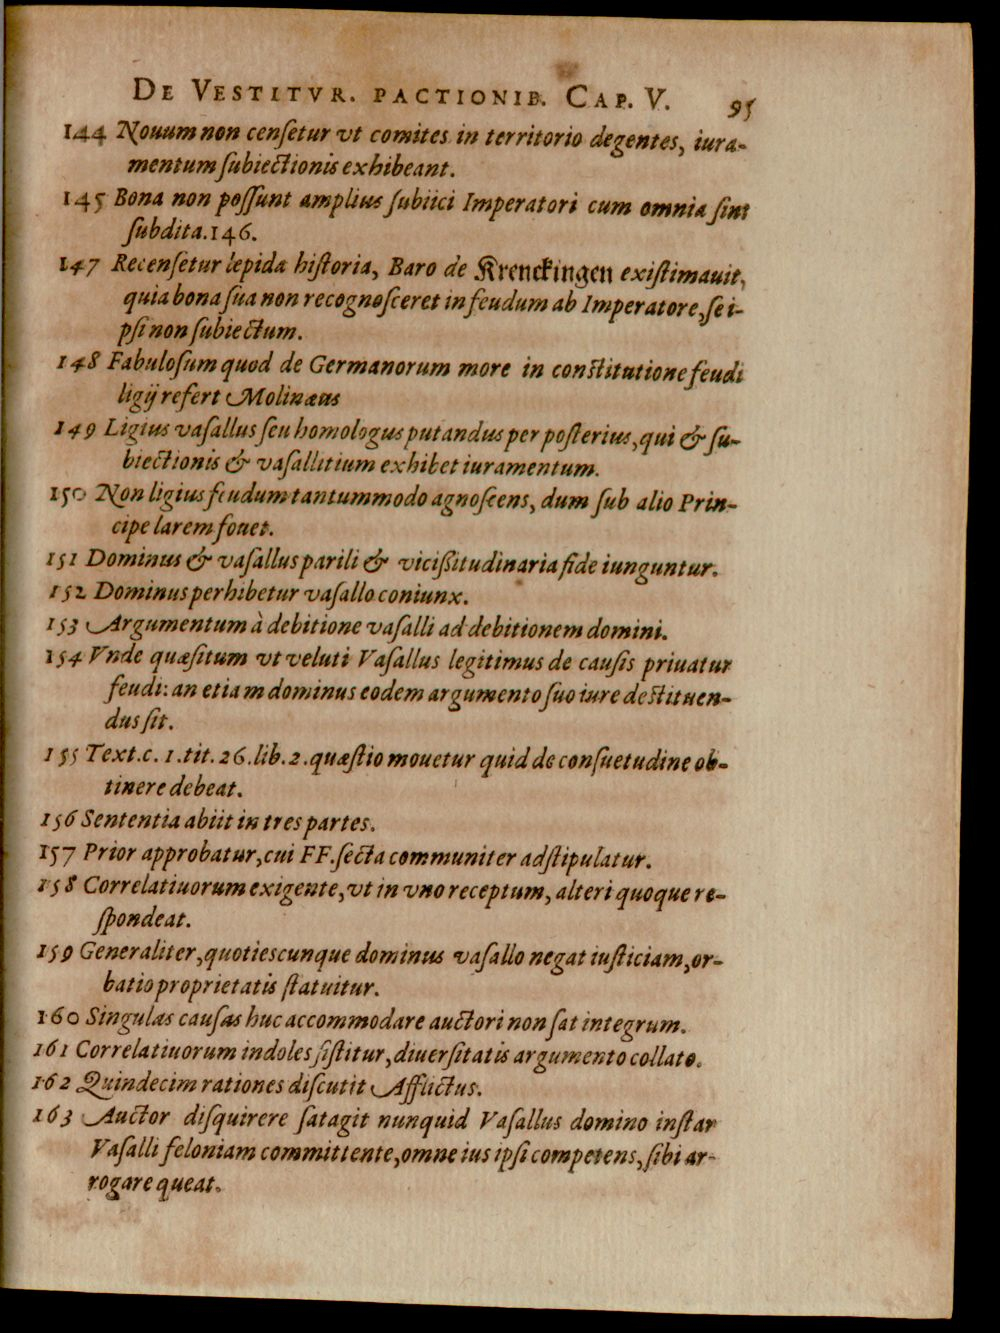 DE VESTITVR. PACTIONIB. CAP. V. 95
144 Nouum non censetur vt comites in territorio degentes, iura-
mentum subiectionis exhibeant.
145 Bona non possunt amplius subiici Imperatori cum omnia sint
subdita.146.
147 Recensetur lepida historia, Baro de Krenckingen existimauit,
quia bona sua non recognosceret in feudum ab Imperatore, se i-
psi non subiectum.
148 Fabulosum quod de Germanorum more in constitutione feudi
ligij refert Molinæus
149 Ligius vasallus seu homologus putandus per posterius, qui & su-
biectionis & vasallitium exhibet iuramentum.
150 Non ligius feudum tantummodo agnoscens, dum sub alio Prin-
cipe larem fouet.
151 Dominus & vasallus parili & vicißitudinaria fide iunguntur.
152 Dominus perhibetur vasallo coniunx.
153 Argumentum à debitione vasalli ad debitionem domini.
154 Vnde quæsitum vt veluti Vasallus legitimus de causis priuatur
feudi: an etiam dominus eodem argumento suo iure destituen-
dus sit.
155 Text.c. 1.tit. 26.lib. 2.quæstio mouetur quid de consuetudine ob-
tinere debeat.
156 Sententia abiit in tres partes.
157 Prior approbatur, cui FF. secta communiter adstipulatur.
158 Correlatiuorum exigente, vt in vno receptum, alteri quoque re-
spondeat.
159 Generaliter, quotiescunque dominus vasallo negat iusticiam, or-
batio proprietatis statuitur.
160 Singulas causas huc accommodare auctori non sat integrum.
161 Correlatiuorum indoles sistitur, diuersitatis argumento collato.
162 Quindecim rationes discutit Afflictus.
163 Auctor disquirere satagit nunquid Vasallus domino instar
Vasalli feloniam committente, omne ius ipsi competens, sibi ar-
rogare queat.